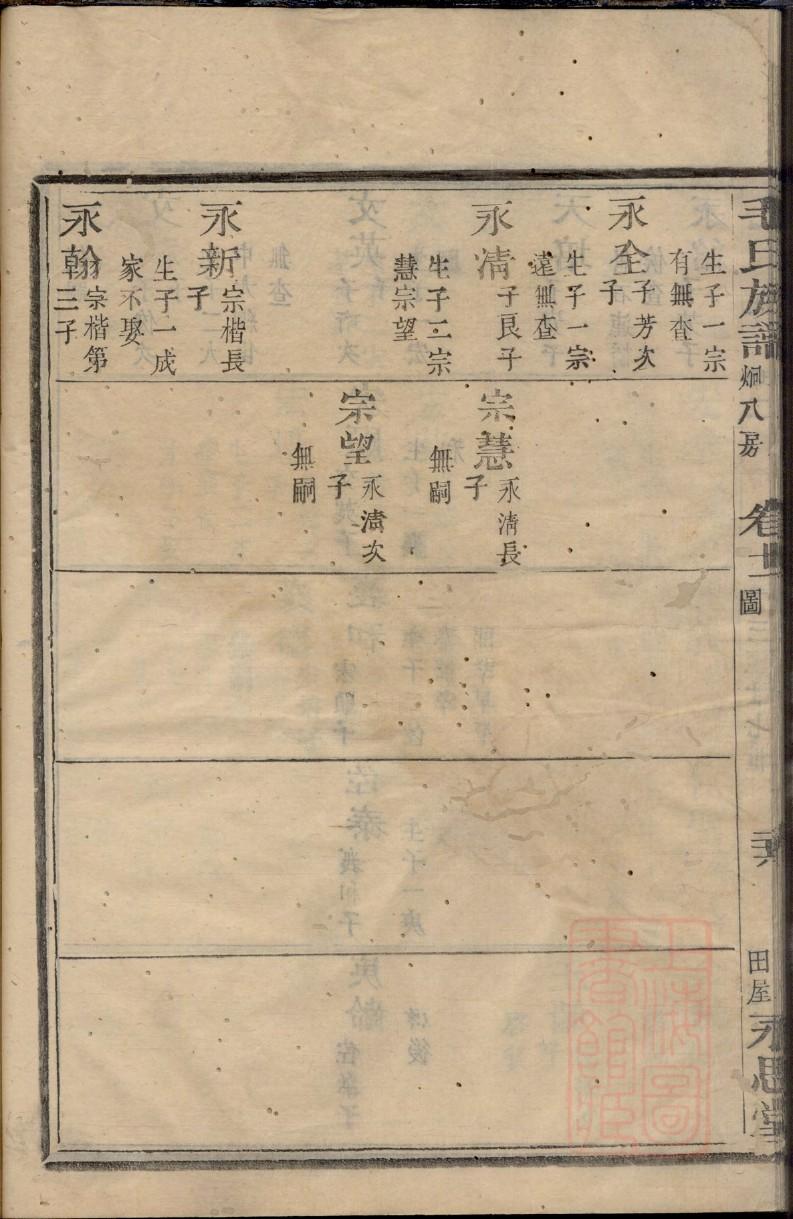 毛氏族譜 烱八房 卷十二 圖 田屋 永思堂
生子一宗
有無查
永全 子芳次
子
生子一宗
遠無查
永清 子良子
生子二宗
慧宗望
永新 宗楷長
子
生子一成
家不娶
永翰 宗楷第
三子
宗慧 永清長
子
無嗣
宗望 永清次
子
無嗣
上海圖
書館藏